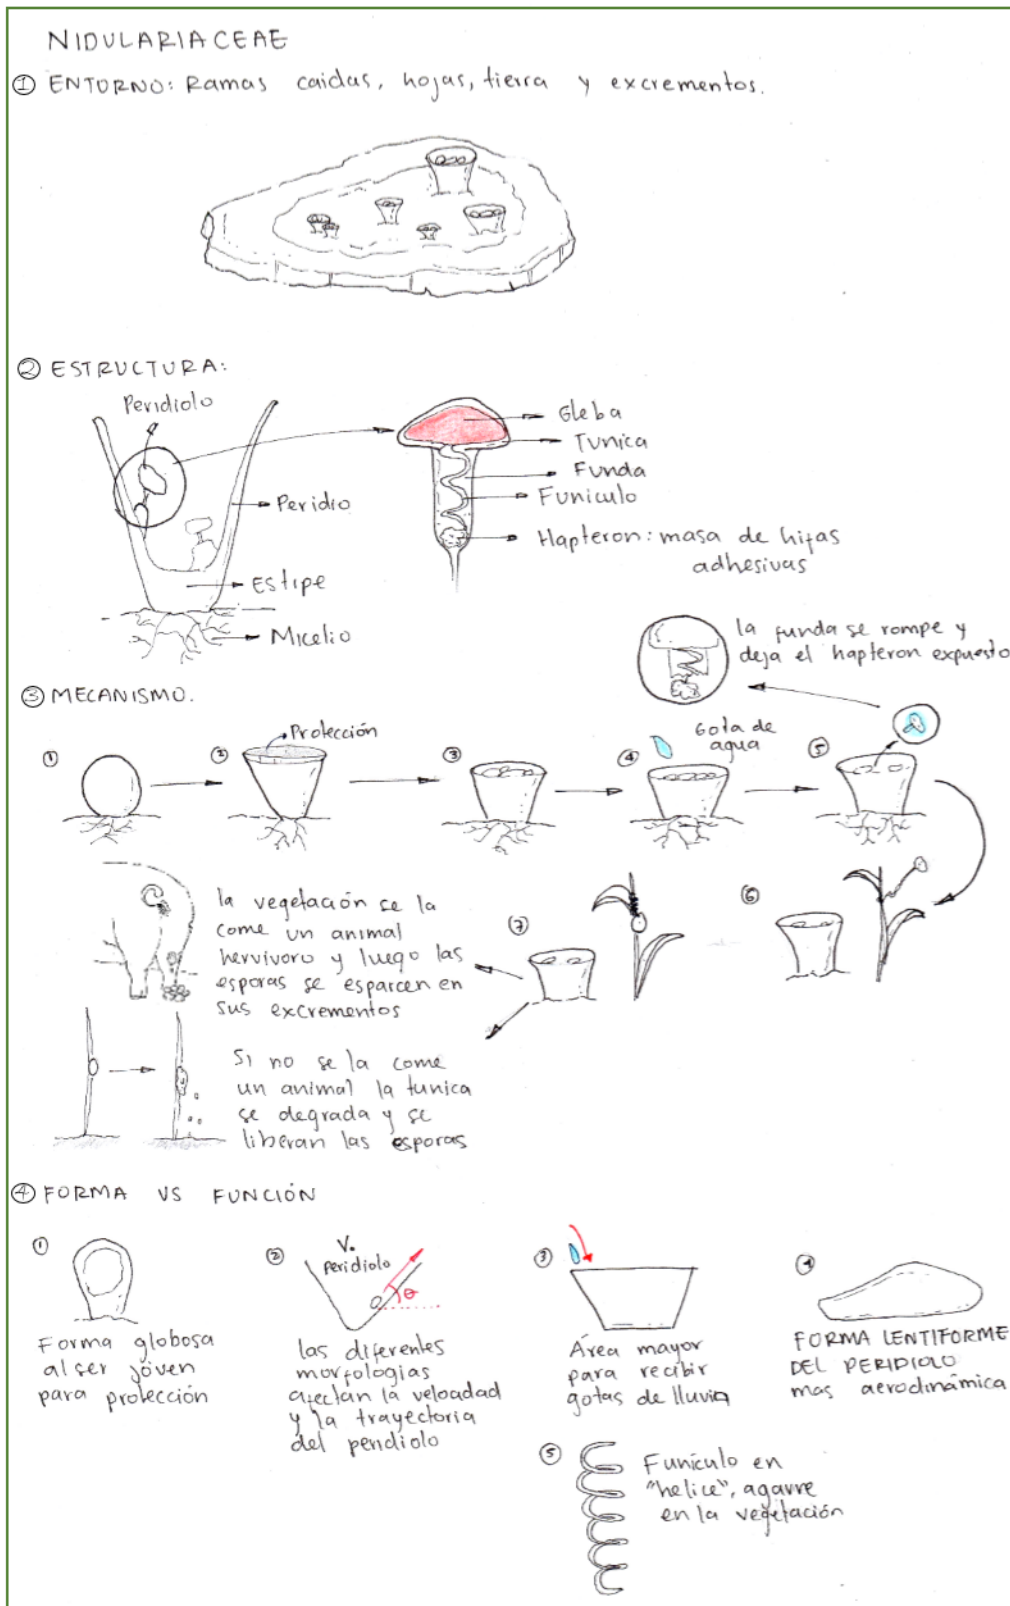 NIDULARIACEAE
① ENTORNO: Ramas caidas, hojas, tierra y excrementos.
② ESTRUCTURA:
Peridiolo
Peridio
Estipe
Micelio
Gleba
Tunica
Funda
Funiculo
Hapteron: masa de hifas
adhesivas
la funda se rompe y
deja el hapteron expuesto
③ MECANISMO.
①
②
Protección
③
④
Gota de
agua
⑤
⑥
⑦
la vegetación se la
come un animal
hervivoro y luego las
esporas se esparcen en
sus excrementos
Si no se la come
un animal la tunica
se degrada y se
liberan las esporas
④ FORMA VS FUNCIÓN
①
Forma globosa
al ser jóven
para protección
②
V.
Peridiolo
θ
las diferentes
morfologias
afectan la velocidad
y la trayectoria
del peridiolo
③
Área mayor
para recibir
gotas de lluvia
④
FORMA LENTIFORME
DEL PERIDIOLO
mas aerodinámica
⑤
Funículo en
"helice", agarre
en la vegetación